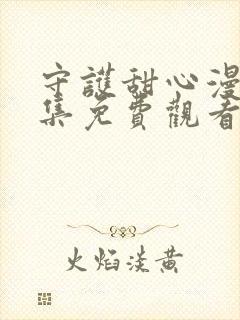 守護甜心漫
集免費觀看
火焰淡黃